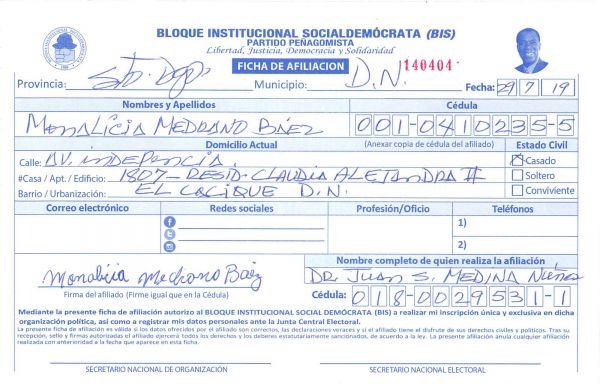 BLOQUE INSTITUCIONAL SOCIALDEMÓCRATA (BIS)
PARTIDO PEÑAGOMISTA
Libertad, Justicia, Democracia y Solidaridad
FICHA DE AFILIACION
140404
Provincia: Sto. Dgo. Municipio: D.N. Fecha: 29/7/19
Nombres y Apellidos Cédula
MONALICIA MEDRANO BÁEZ 001-0410235-5
Domicilio Actual (Anexar copia de cédula del afiliado) Estado Civil
Calle: AV. indepencia. Casado
#Casa / Apt. / Edificio: 1807- RESID. CLAUDIA ALEJANDRA II Soltero
Barrio / Urbanización: EL CACIQUE D.N. Conviviente
Correo electrónico Redes sociales Profesión/Oficio Teléfonos
1)
2)
Nombre completo de quien realiza la afiliación
Monalicia Medrano Baéz DR. JUAN S. MEDINA Nuñez
Firma del afiliado (Firme igual que en la Cédula) Cédula: 018-0029531-1
Mediante la presente ficha de afiliación autorizo al BLOQUE INSTITUCIONAL SOCIAL DEMÓCRATA (BIS) a realizar mi inscripción única y exclusiva en dicha
organización política, así como a registrar mis datos personales ante la Junta Central Electoral.
La presente ficha de afiliación es válida si los datos ofrecidos por el afiliado son correctos, las declaraciones veraces y si el afiliado tiene el disfrute de sus derechos civiles y políticos. Tras su
recepción, sello y firmas autorizadas el afiliado ejercerá todos los derechos y los deberes estatutariamente sancionados, de acuerdo a la ley. La presente afiliación anula cualquier afiliación
realizada con anterioridad a la fecha que aparece en esta ficha.
SECRETARIO NACIONAL DE ORGANIZACIÓN SECRETARIO NACIONAL ELECTORAL